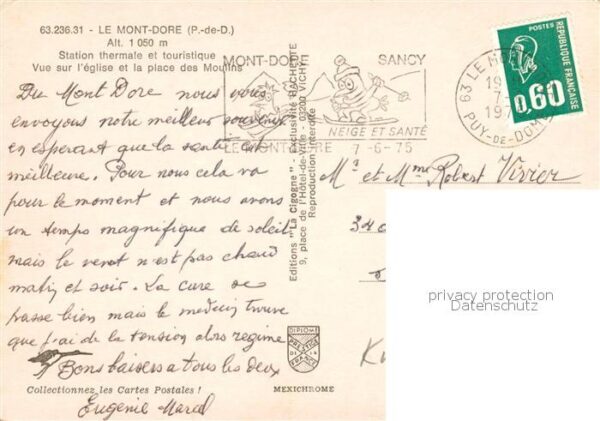 63.236.31 - LE MONT-DORE (P.-de-D.)
Alt. 1 050 m
Station thermale et touristique
Vue sur l'église et la place des Moulins
Du Mont Dore nous vous
envoyons notre meilleur souvenir
en esperant que la santé est
meilleure. Pour nous cela va
pour le moment et nous avons
un temps magnifique de soleil
mais le vent n'est pas chaud
matin et soir. La cure se
passe bien mais le medecin trouve
que j'ai de la tension alors regime
Bons baisers a tous les deux
Eugenie Marcel
Collectionnez les Cartes Postales !
MEXICHROME
Editions "La Cigogne" - Exclusivité HACHETTE
9, place de l'Hôtel-de-Ville - 03200 VICHY
Reproduction interdite
DIPLOME
PRESTIGE
DE LA
FRANCE
MONT-DORE SANCY
NEIGE ET SANTÉ
LE MONT-DORE 7-6-75
63 LE MONT-DORE
PUY-DE-DOME
POSTES
REPUBLIQUE FRANÇAISE
0,60
Mr et Mme Robert Vivier
340
privacy protection
Datenschutz